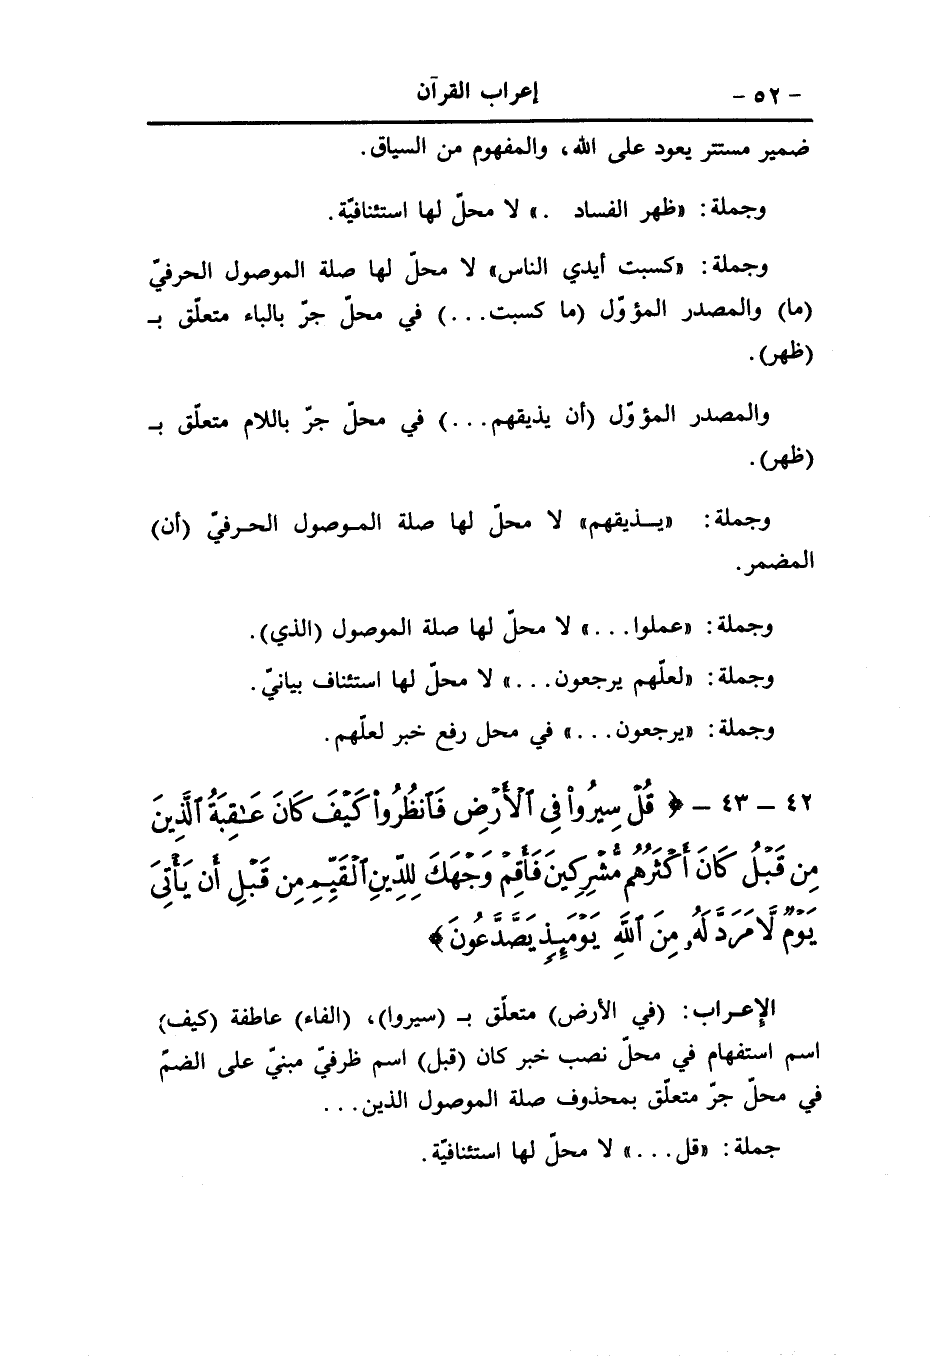 - ٥٢ - إعراب القرآن
ضمير مستتر يعود على الله، والمفهوم من السياق.
وجملة: «ظهر الفساد .» لا محلّ لها استئنافيّة.
وجملة: «كسبت أيدي الناس» لا محلّ لها صلة الموصول الحرفيّ
(ما) والمصدر المؤوّل (ما كسبت...) في محلّ جرّ بالباء متعلّق بـ
(ظهر).
والمصدر المؤوّل (أن يذيقهم...) في محلّ جرّ باللام متعلّق بـ
(ظهر).
وجملة: «يـذيقهم» لا محلّ لها صلة الموصول الحرفيّ (أن)
المضمر.
وجملة: «عملوا...» لا محلّ لها صلة الموصول (الذي).
وجملة: «لعلّهم يرجعون...» لا محلّ لها استئناف بيانيّ.
وجملة: «يرجعون...» في محل رفع خبر لعلّهم.
٤٢ - ٤٣ - ﴿ قُلْ سِيرُوا۟ فِى ٱلْأَرْضِ فَٱنظُرُوا۟ كَيْفَ كَانَ عَـٰقِبَةُ ٱلَّذِينَ
مِن قَبْلُ كَانَ أَكْثَرُهُم مُّشْرِكِينَ فَأَقِمْ وَجْهَكَ لِلدِّينِ ٱلْقَيِّمِ مِن قَبْلِ أَن يَأْتِىَ
يَوْمٌ لَّا مَرَدَّ لَهُۥ مِنَ ٱللَّهِ يَوْمَئِذٍ يَصَّدَّعُونَ ﴾
الإعـراب: (في الأرض) متعلّق بـ (سيروا)، (الفاء) عاطفة (كيف)
اسم استفهام في محلّ نصب خبر كان (قبل) اسم ظرفيّ مبنيّ على الضمّ
في محلّ جرّ متعلّق بمحذوف صلة الموصول الذين...
جملة: «قل...» لا محلّ لها استئنافيّة.